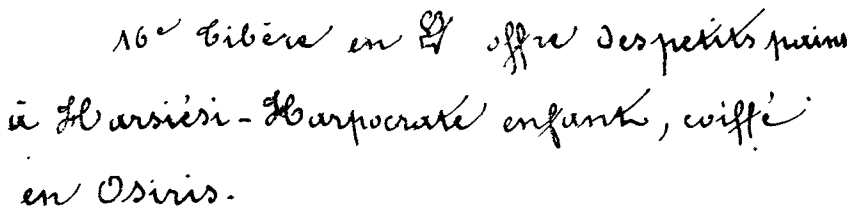 16° Tibère en offre des petits pains
à Harsiési-Harpocrate enfant, coiffé
en Osiris.